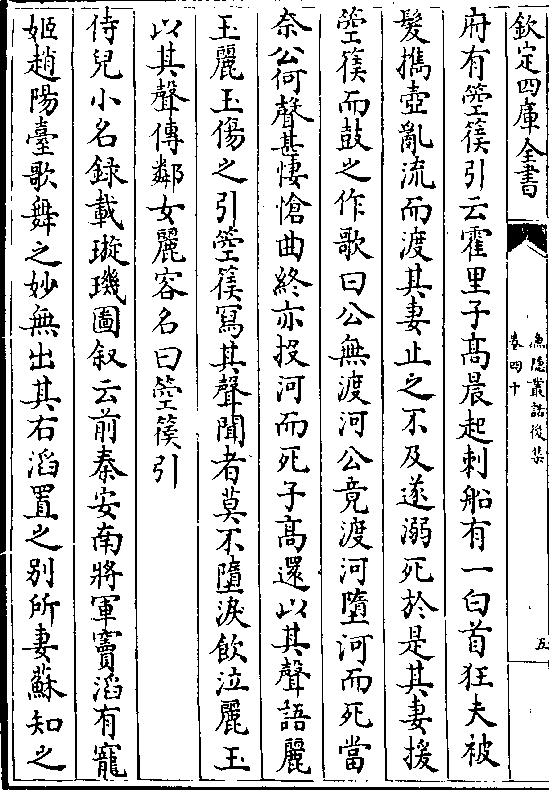 欽定四庫全書
漁隱叢話後集
卷四十
五
府有箜篌引云霍里子髙晨起刺船有一白首狂夫被
髮攜壺亂流而渡其妻止之不及遂溺死於是其妻援
箜篌而鼓之作歌曰公無渡河公竟渡河墮河而死當
奈公何聲甚悽愴曲終亦投河而死子髙還以其聲語麗
玉麗玉傷之引箜篌寫其聲聞者莫不墮淚飲泣麗玉
以其聲傳鄰女麗容名曰箜篌引
侍兒小名録載璇璣圖叙云前秦安南將軍竇滔有寵
姬趙陽臺歌舞之妙無出其右滔置之别所妻蘇知之